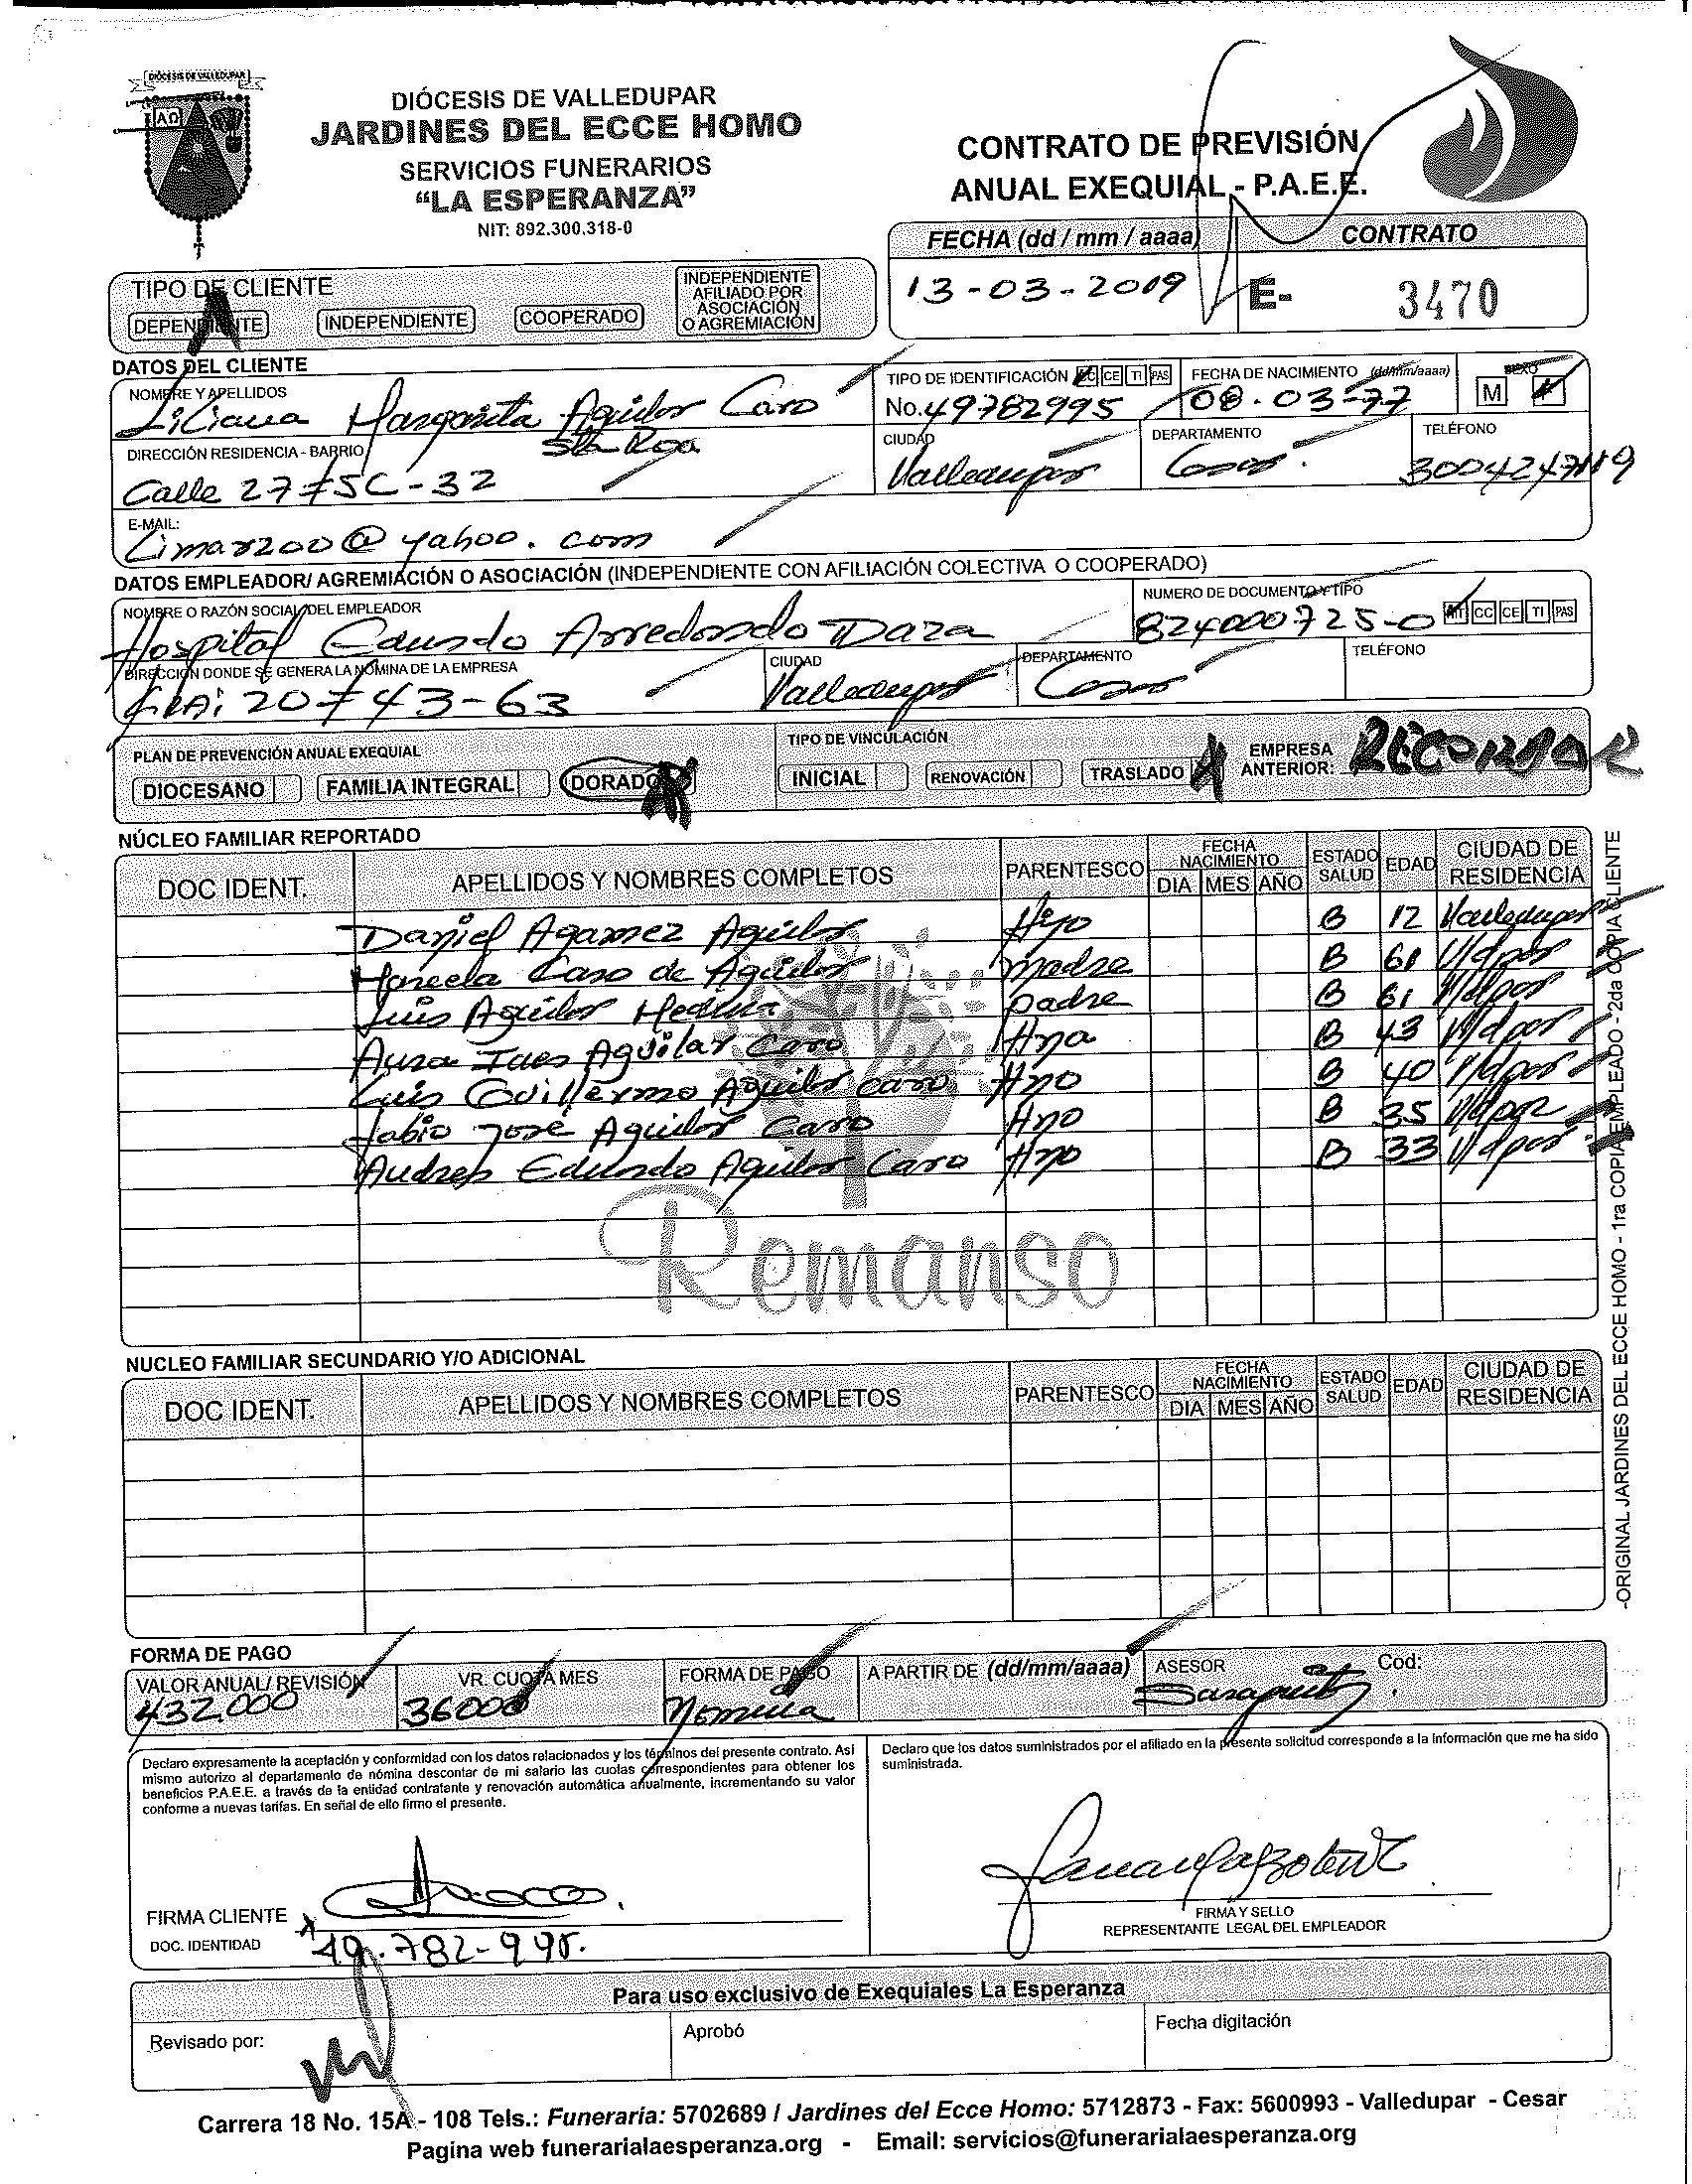 DIÓCESIS DE VALLEDUPAR
DIÓCESIS DE VALLEDUPAR
JARDINES DEL ECCE HOMO
SERVICIOS FUNERARIOS
“LA ESPERANZA”
NIT: 892.300.318-0
CONTRATO DE PREVISIÓN
ANUAL EXEQUIAL - P.A.E.E.
FECHA (dd / mm / aaaa) CONTRATO
13-03-2019 E- 3470
TIPO DE CLIENTE
DEPENDIENTE INDEPENDIENTE COOPERADO INDEPENDIENTE AFILIADO POR ASOCIACIÓN O AGREMIACIÓN
DATOS DEL CLIENTE
NOMBRE Y APELLIDOS TIPO DE IDENTIFICACIÓN CC CE TI PAS FECHA DE NACIMIENTO (dd/mm/aaaa) SEXO
Liliana Margarita Aguilar Caro No. 49782995 08-03-77 M F
DIRECCIÓN RESIDENCIA - BARRIO Sta Rosa CIUDAD DEPARTAMENTO TELÉFONO
Calle 27 # 5C-32 Valledupar Cesar 3004247119
E-MAIL:
Limar200@yahoo.com
DATOS EMPLEADOR/ AGREMIACIÓN O ASOCIACIÓN (INDEPENDIENTE CON AFILIACIÓN COLECTIVA O COOPERADO)
NOMBRE O RAZÓN SOCIAL DEL EMPLEADOR NUMERO DE DOCUMENTO Y TIPO
Hospital Eduardo Arredondo Daza 824000725-0 NIT CC CE TI PAS
DIRECCIÓN DONDE SE GENERA LA NÓMINA DE LA EMPRESA CIUDAD DEPARTAMENTO TELÉFONO
20 # 43-63 Valledupar Cesar
PLAN DE PREVENCIÓN ANUAL EXEQUIAL TIPO DE VINCULACIÓN
DIOCESANO FAMILIA INTEGRAL DORADO INICIAL RENOVACIÓN TRASLADO EMPRESA ANTERIOR: RECORDAR
NÚCLEO FAMILIAR REPORTADO
DOC IDENT. APELLIDOS Y NOMBRES COMPLETOS PARENTESCO FECHA NACIMIENTO DIA MES AÑO ESTADO SALUD EDAD CIUDAD DE RESIDENCIA
Daniel Agamez Aguilar Hijo B 12 Valledupar
Marcela Caro de Aguilar madre B 61 V/dpar
Luis Aguilar Medina padre B 61 V/dpar
Aura Ines Aguilar Caro Hna B 43 V/dpar
Luis Guillermo Aguilar Caro Hno B 40 V/dpar
Fabio Jose Aguilar Caro Hno B 35 V/dpar
Andres Eduardo Aguilar Caro Hno B 33 V/dpar
Remanso
NUCLEO FAMILIAR SECUNDARIO Y/O ADICIONAL
DOC IDENT. APELLIDOS Y NOMBRES COMPLETOS PARENTESCO FECHA NACIMIENTO DIA MES AÑO ESTADO SALUD EDAD CIUDAD DE RESIDENCIA
-ORIGINAL JARDINES DEL ECCE HOMO - 1ra COPIA EMPLEADO - 2da COPIA CLIENTE
FORMA DE PAGO
VALOR ANUAL/ REVISIÓN VR. CUOTA MES FORMA DE PAGO A PARTIR DE (dd/mm/aaaa) ASESOR Cod:
432.000 36000 Nomina
Declaro expresamente la aceptación y conformidad con los datos relacionados y los términos del presente contrato. Así
mismo autorizo al departamento de nómina descontar de mi salario las cuotas correspondientes para obtener los
beneficios P.A.E.E. a través de la entidad contratante y renovación automática anualmente, incrementando su valor
conforme a nuevas tarifas. En señal de ello firmo el presente.
Declaro que los datos suministrados por el afiliado en la presente solicitud corresponde a la información que me ha sido
suministrada.
FIRMA CLIENTE
DOC. IDENTIDAD 49.782-995.
FIRMA Y SELLO
REPRESENTANTE LEGAL DEL EMPLEADOR
Para uso exclusivo de Exequiales La Esperanza
Revisado por: Aprobó Fecha digitación
Carrera 18 No. 15A - 108 Tels.: Funeraria: 5702689 / Jardines del Ecce Homo: 5712873 - Fax: 5600993 - Valledupar - Cesar
Pagina web funerarialaesperanza.org - Email: servicios@funerarialaesperanza.org